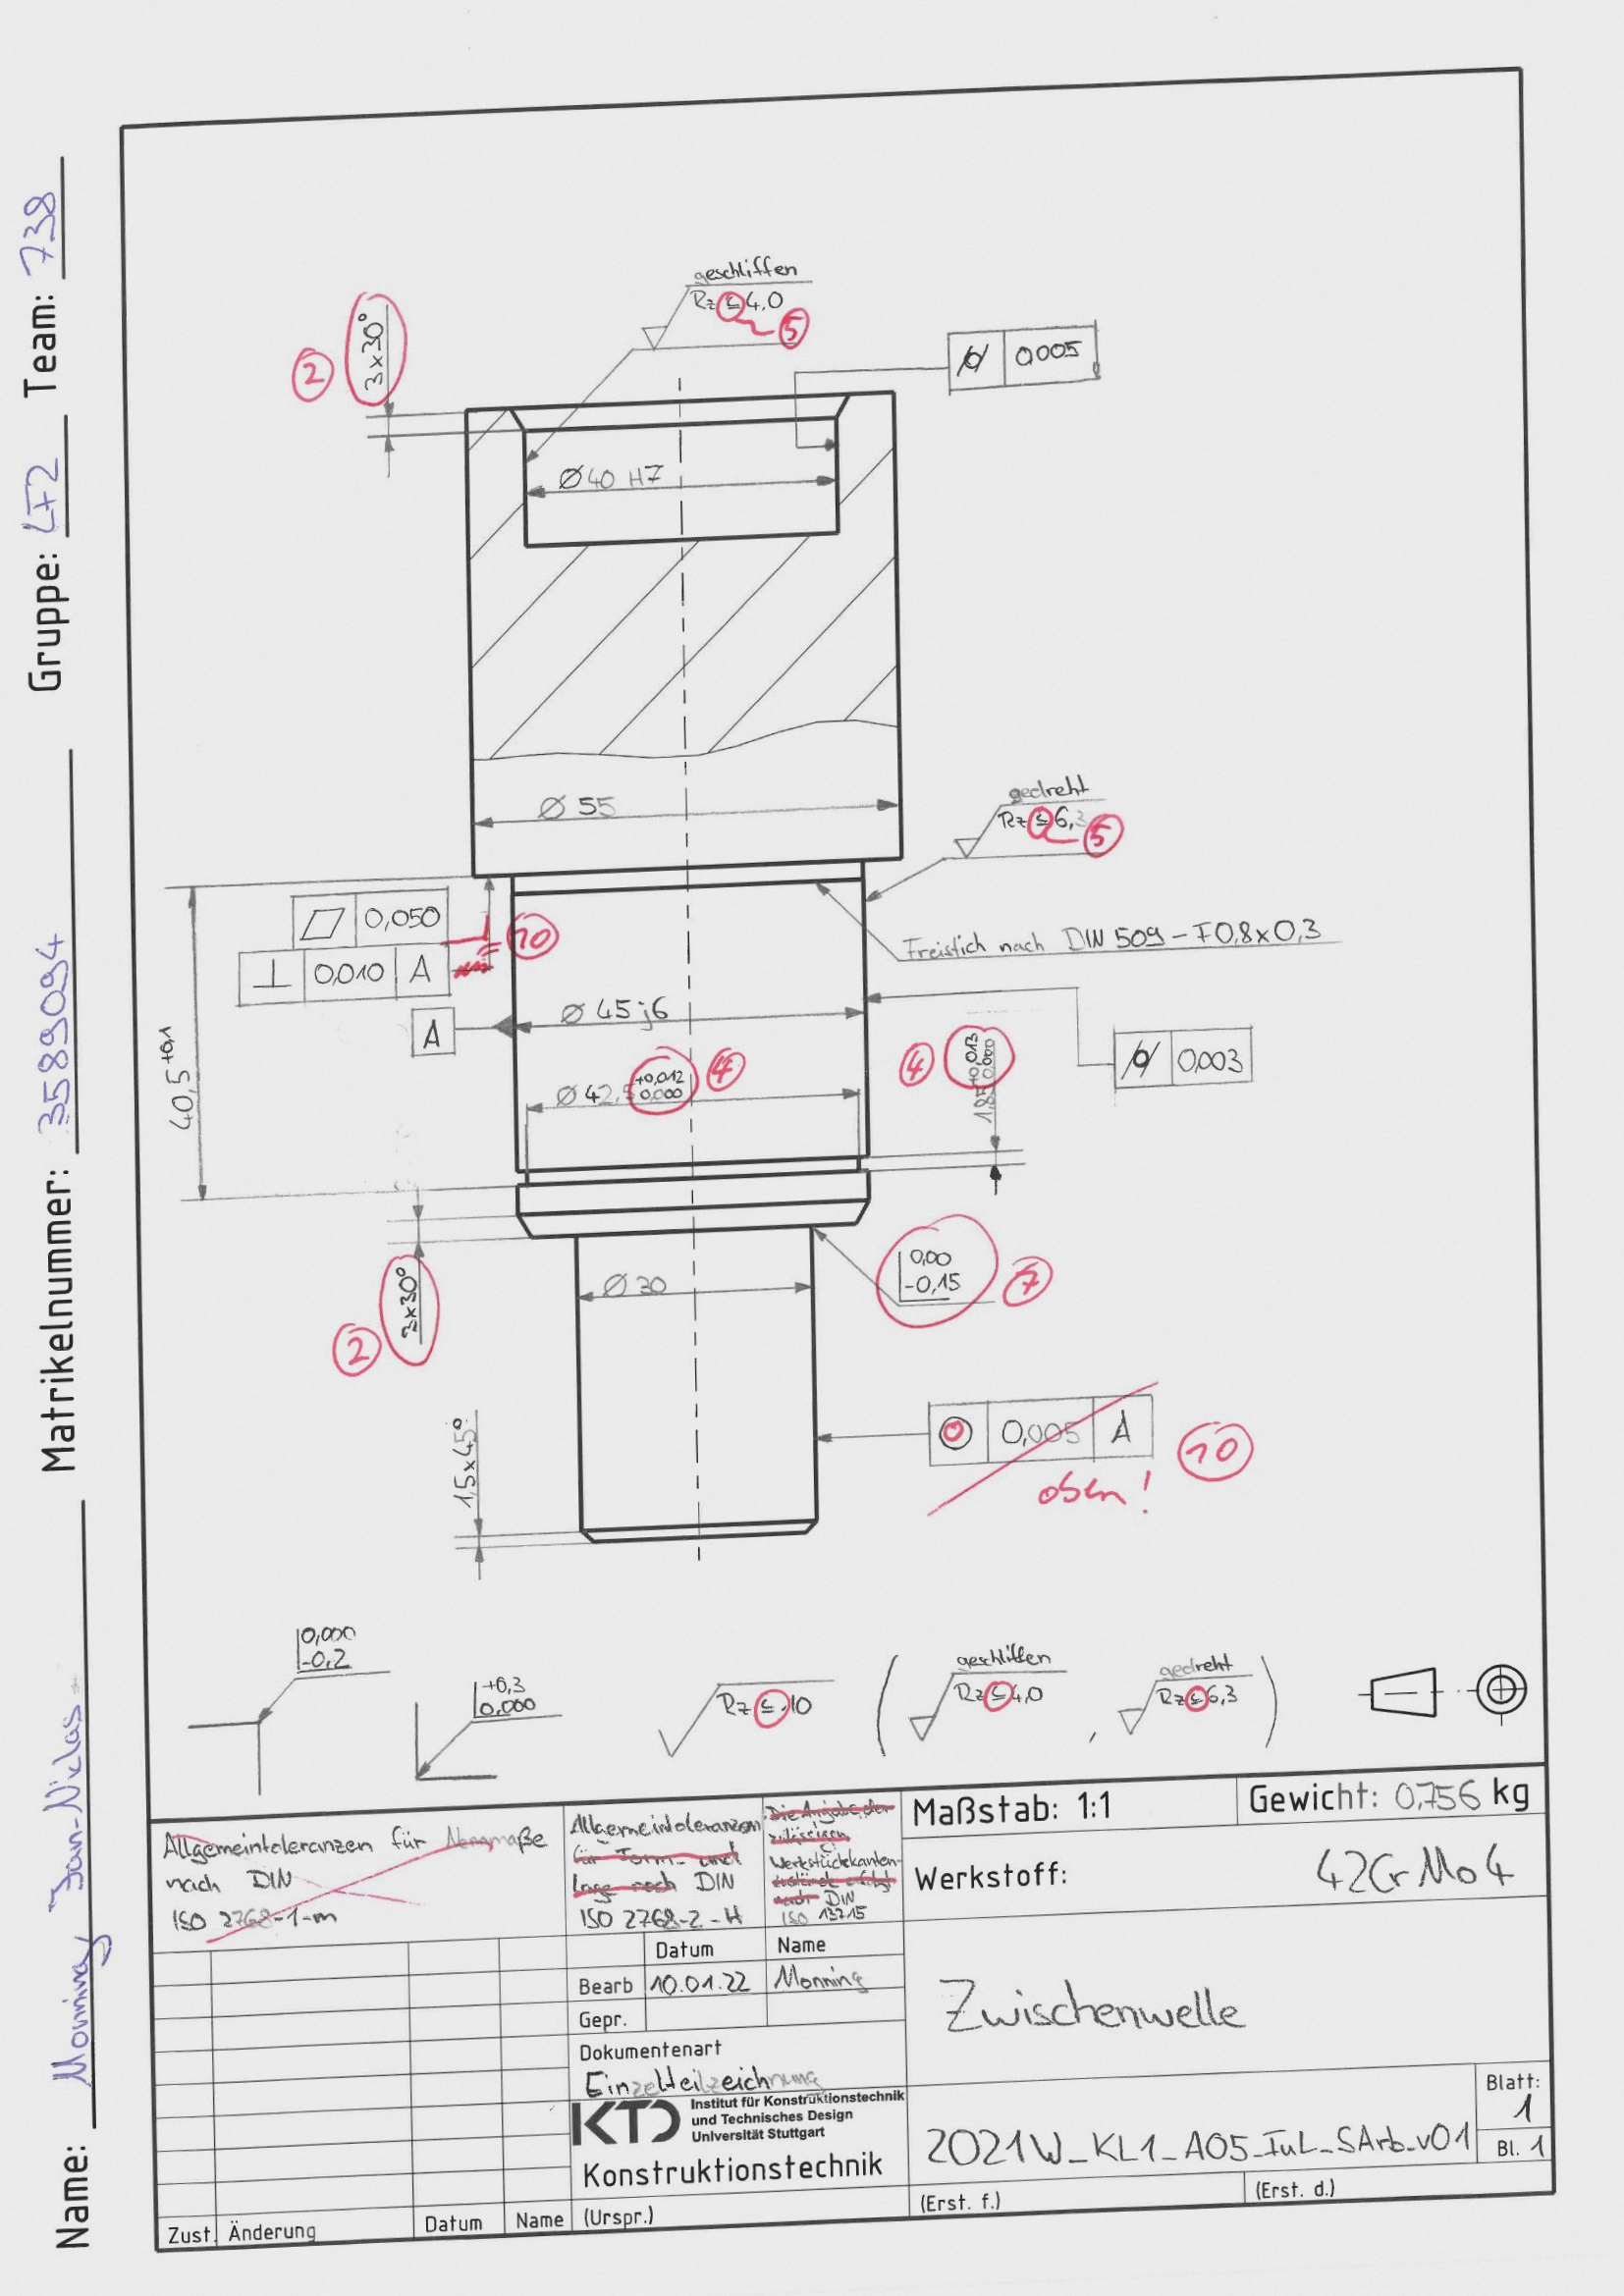 Name: Monning, Jan-Niclas Matrikelnummer: 3589094 Gruppe: LF2 Team: 738
geschliffen
Rz ≤ 4,0
5
3x30°
2
0,005
Ø40 H7
Ø 55
gedreht
Rz ≤ 6,3
5
0,050
10
⊥ 0,010 A
Freistich nach DIN 509 - F0,8x0,3
A
Ø 45 j6
40,5 +0,1
Ø 42,5 +0,012
0,000
4
4
1,85 +0,013
0,000
0,003
0,00
-0,15
7
Ø 30
3x30°
2
◎ 0,005 A
10
oben!
1,5x45°
0,000
-0,2
+0,3
0,000
Rz ≤ 10
(
geschliffen
Rz ≤ 4,0
,
gedreht
Rz ≤ 6,3
)
Allgemeintoleranzen für Nennmaße
nach DIN
ISO 2768-1-m
Allgemeintoleranzen
für Form- und
Lage nach DIN
ISO 2768-2-H
Die Angabe der
zulässigen
Werkstückkanten-
zustände erfolgt
nach DIN
ISO 13715
Maßstab: 1:1
Gewicht: 0,756 kg
Werkstoff: 42CrMo4
Datum Name
Bearb 10.01.22 Monning
Gepr.
Zwischenwelle
Dokumentenart
Einzelteilzeichnung
KTD
Institut für Konstruktionstechnik
und Technisches Design
Universität Stuttgart
Konstruktionstechnik
2021W_KL1_A05_FuL_SArb_v01
Blatt:
1
Bl. 1
Zust. Änderung Datum Name (Urspr.) (Erst. f.) (Erst. d.)